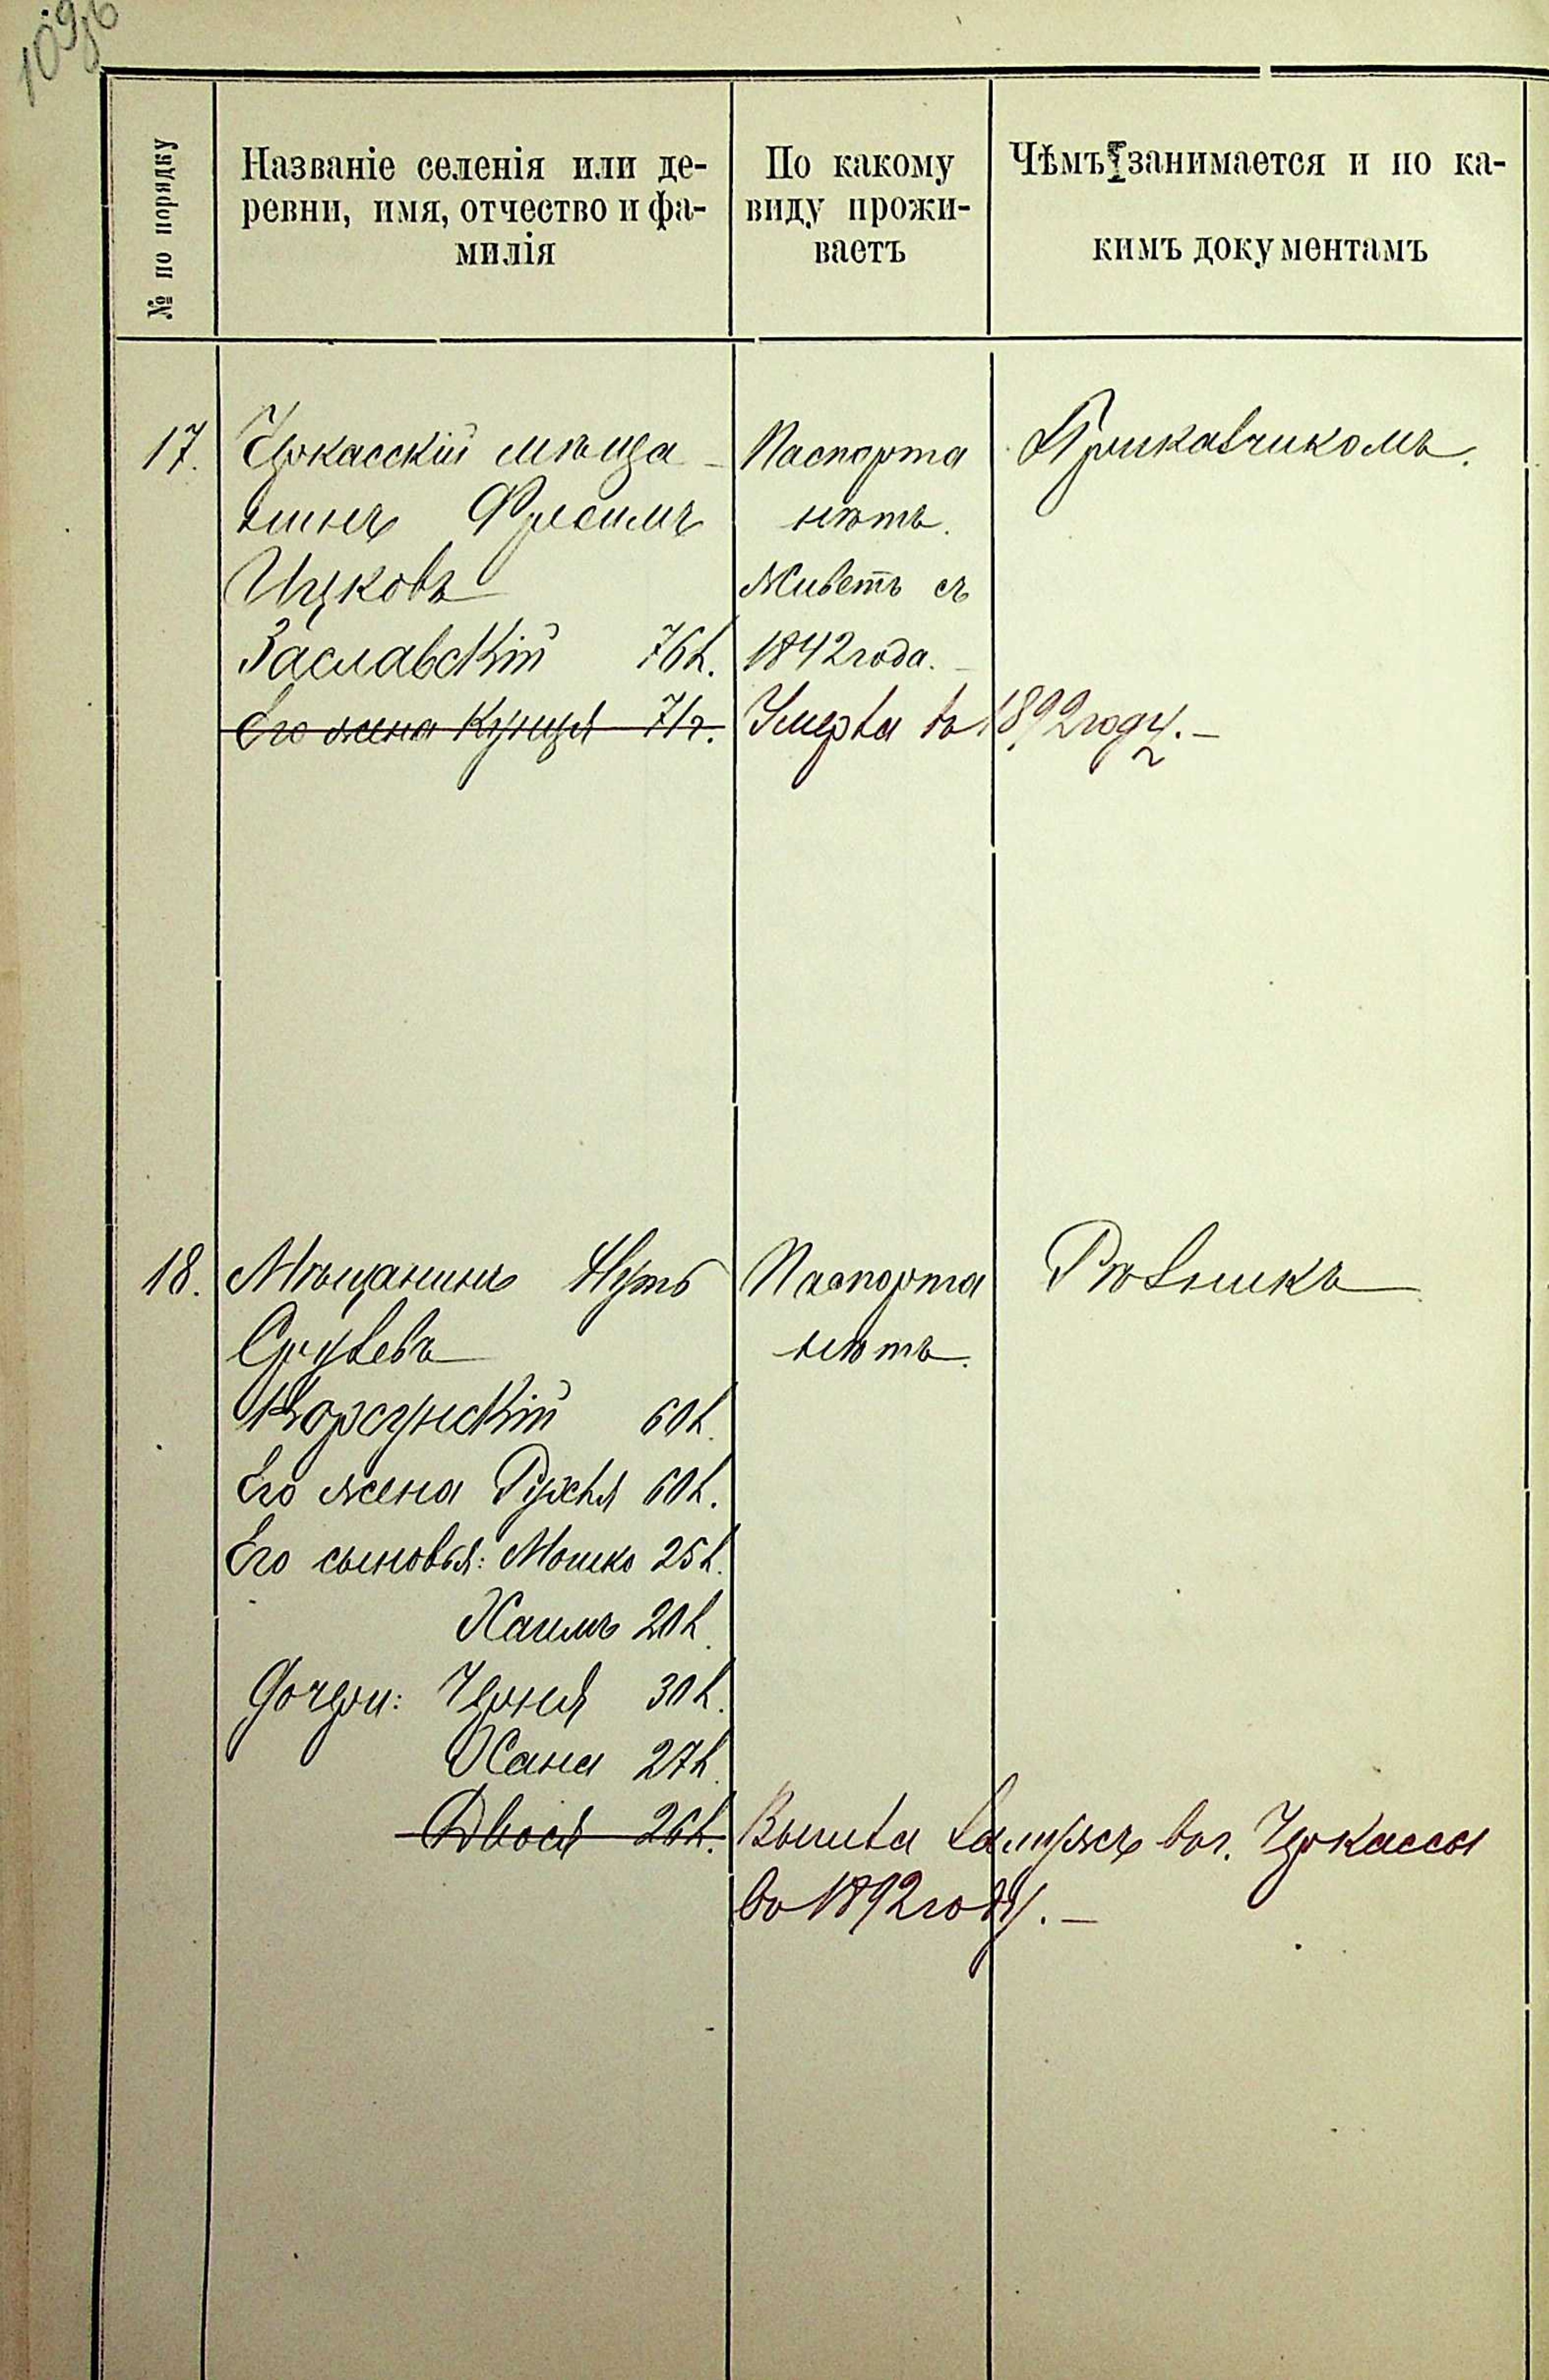 109об
№ по порядку
Названіе селенія или де-
ревни, имя, отчество и фа-
милія
По какому
виду прожи-
ваетъ
Чѣмъ занимается и по ка-
кимъ документамъ
17.
Черкасскій мѣща-
нинъ
Ицковъ
Заславскій 76 л.
Его жена Куция 71 г.
Паспорта
нѣтъ.
Живетъ съ
1842 года.
Умерла въ 1892 году. —
Прикащикомъ.
18.
Мѣщанинъ Нутъ
Срулевъ
Корсунскій 60 л.
Его жена Рухля 60 л.
Его сыновья: Мошко 25 л.
Хаимъ 20 л.
Дочери: Черня 30 л.
Хана 27 л.
Двося 26 л.
Паспорта
нѣтъ.
Рѣзникъ
Вышла замужъ въ г. Черкассы
въ 1892 году. —